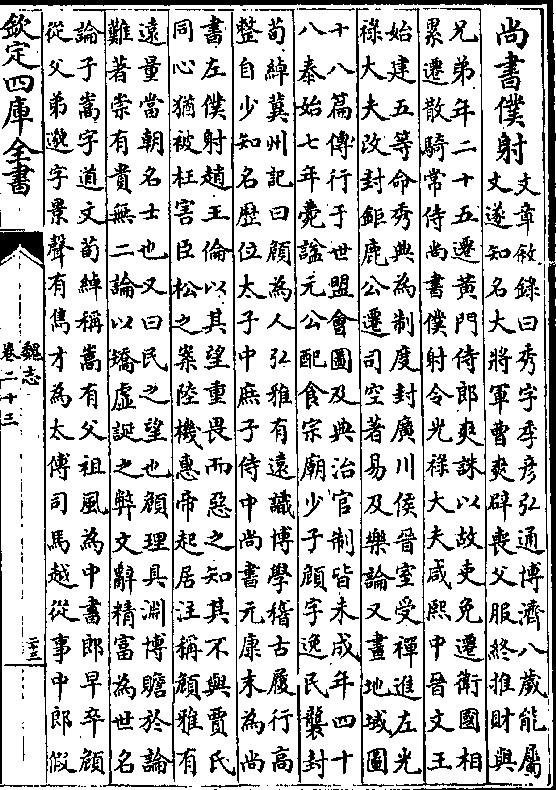 尚書僕射 文章叙録曰秀字季彦弘通博濟八歲能屬
文遂知名大將軍曹爽辟喪父服終推財與
兄弟年二十五遷黃門侍郎爽誅以故吏免遷衛國相
累遷散騎常侍尚書僕射令光祿大夫咸熙中晉文王
始建五等命秀典為制度封廣川侯晉室受禪進左光
祿大夫改封鉅鹿公遷司空著易及樂論又畫地域圖
十八篇傳行于世盟會圖及典治官制皆未成年四十
八泰始七年薨諡元公配食宗廟少子頠字逸民襲封
荀綽冀州記曰頠為人弘雅有遠識博學稽古履行高
整自少知名歷位太子中庶子侍中尚書元康末為尚
書左僕射趙王倫以其望重畏而惡之知其不與賈氏
同心猶被枉害臣松之案陸機惠帝起居注稱頠雅有
遠量當朝名士也又曰民之望也頠理具淵博贍於論
難著崇有貴無二論以矯虛誕之弊文辭精富為世名
論子嵩字道文荀綽稱嵩有父祖風為中書郎早卒頠
從父弟邈字景聲有雋才為太傅司馬越從事中郎假
欽定四庫全書
魏志
卷二十三